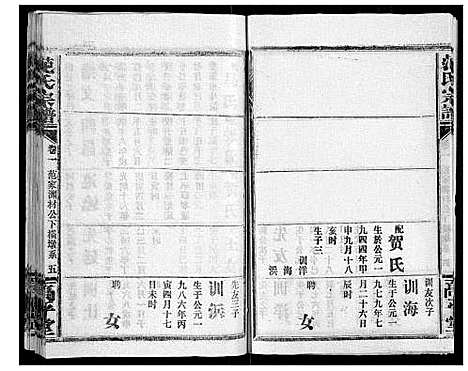 范氏宗譜
高平堂
训友次子
训海
生于公元一
九七九年七
月二十六日
辰时
聘
女
配
贺氏
生於公元一
九四四年甲
申九月十八
亥时
生子三
训洋
海
洪
先友三子
训
生于公元一
九八六年丙
寅四月十七
日未时
聘
女
范氏宗譜
卷一
五
高平堂